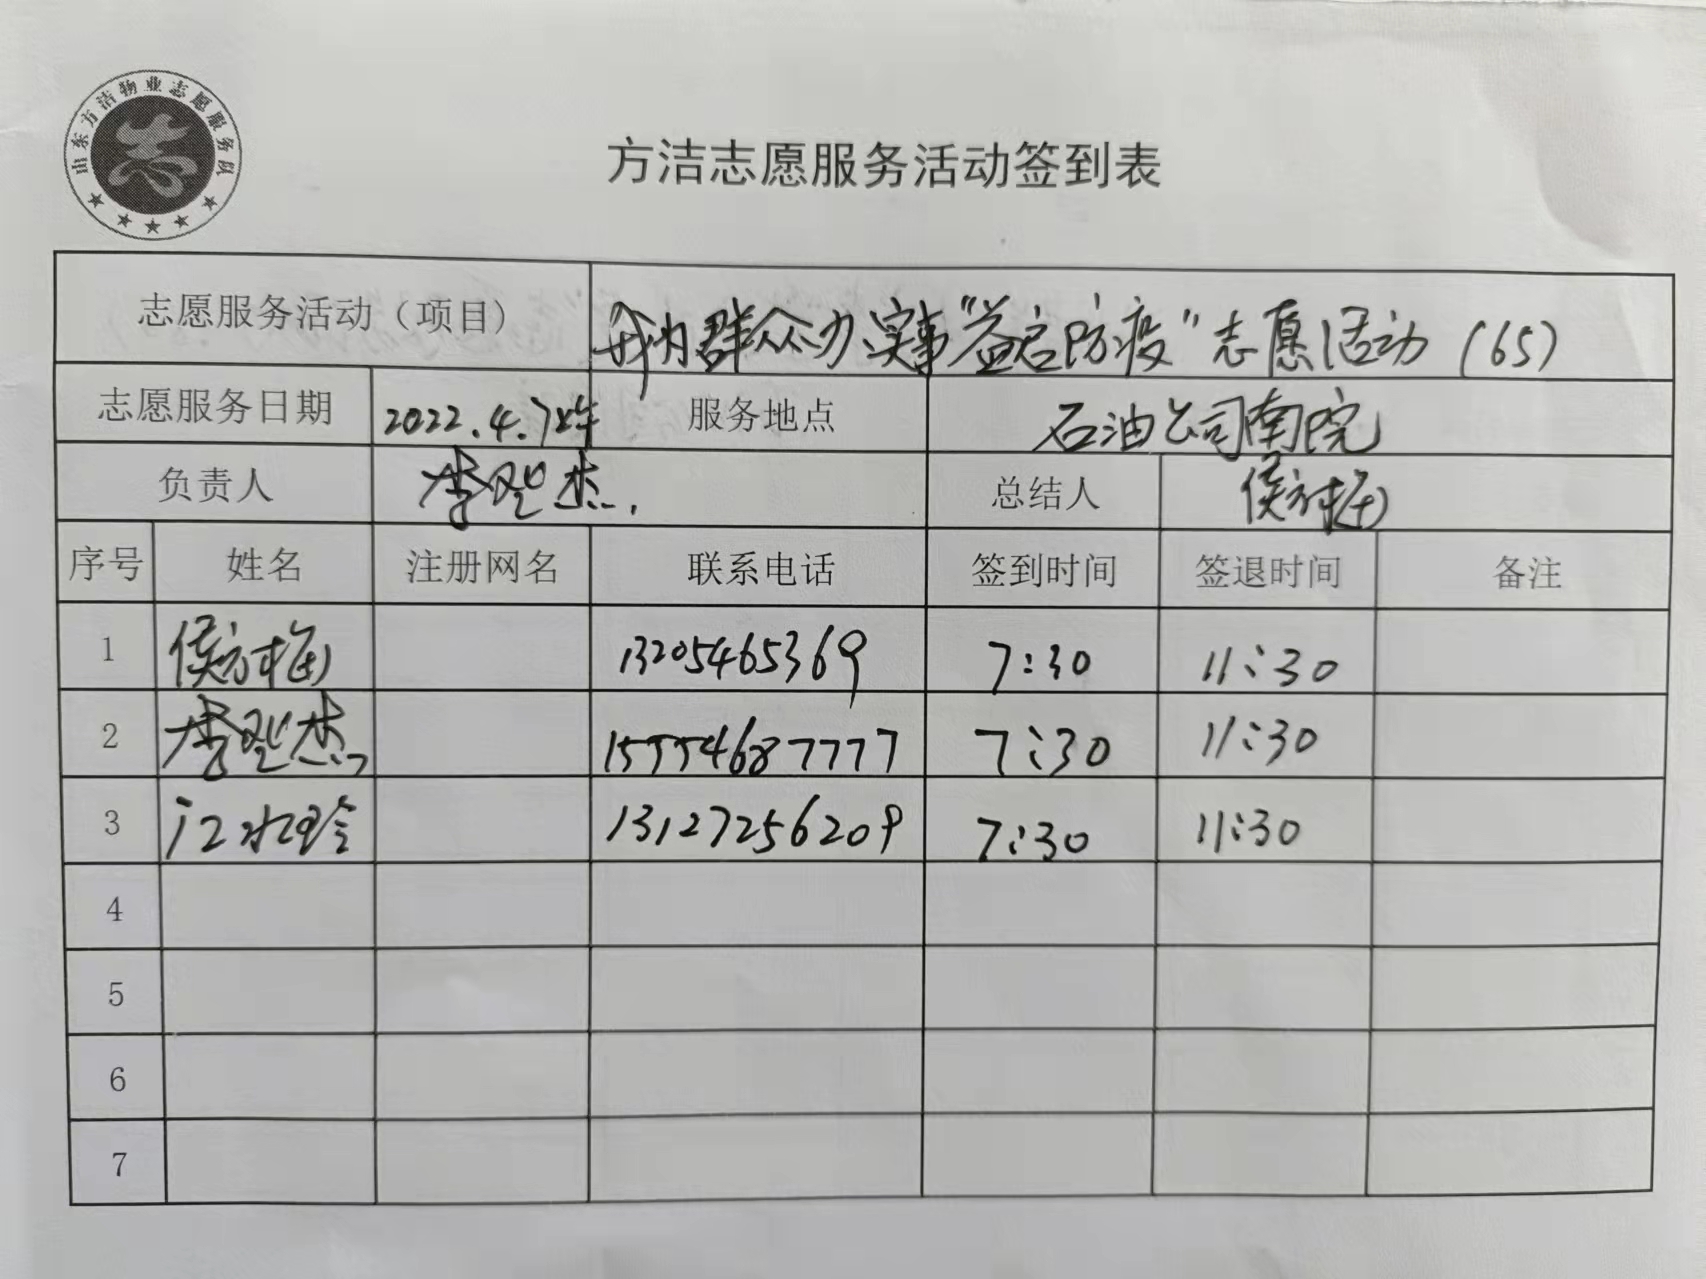 山东方洁物业志愿服务队
方洁志愿服务活动签到表
志愿服务活动（项目） 我为群众办实事“益启防疫”志愿活动（65）
志愿服务日期 2022.4.7上午 服务地点 石油公司南院
负责人 李 杰 总结人 侯方梅
序号 姓名 注册网名 联系电话 签到时间 签退时间 备注
1 侯方梅 13205465369 7:30 11:30
2 李 杰 15554687777 7:30 11:30
3 江水玲 13127256209 7:30 11:30
4
5
6
7